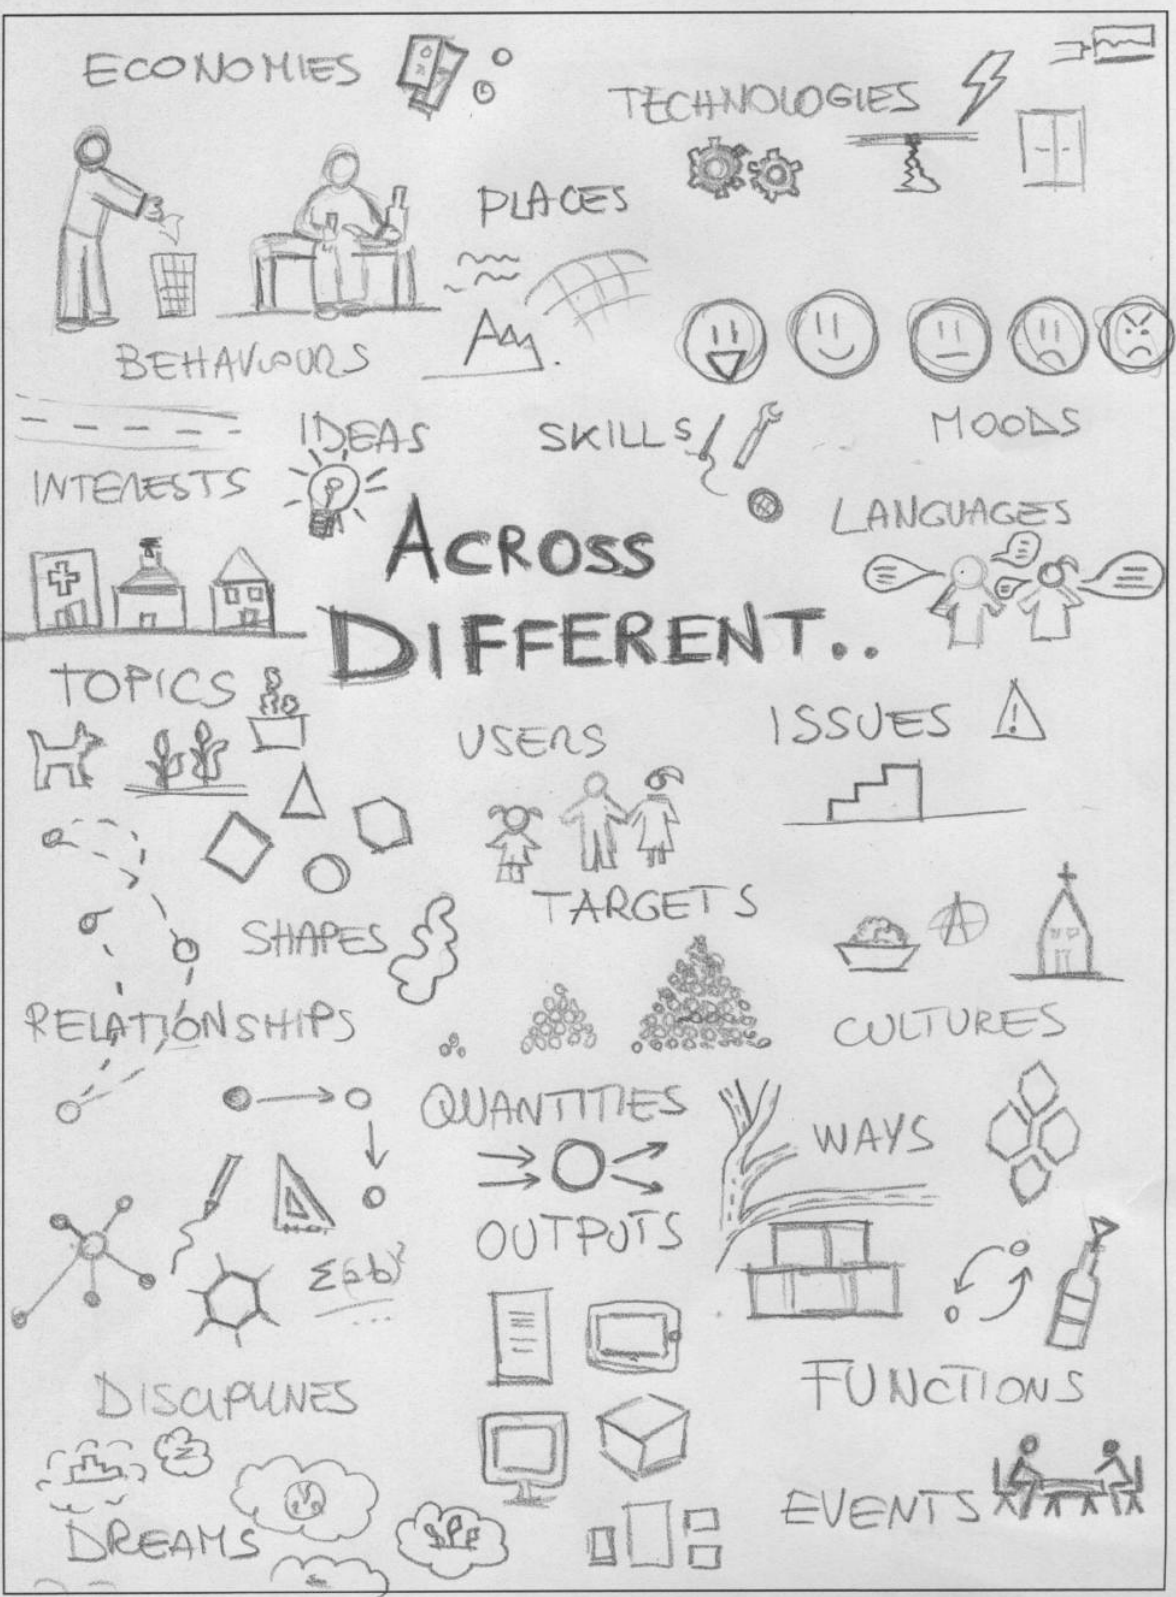 ECONOMIES
TECHNOLOGIES
PLACES
BEHAVIOURS
IDEAS
SKILLS
MOODS
INTERESTS
LANGUAGES
ACROSS
DIFFERENT..
TOPICS
USERS
ISSUES
TARGETS
SHAPES
RELATIONSHIPS
CULTURES
QUANTITIES
WAYS
OUTPUTS
DISCIPLINES
FUNCTIONS
EVENTS
DREAMS